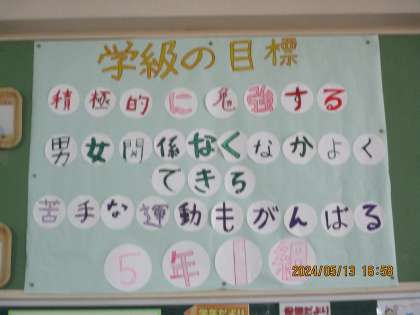 学級の目標
積極的に勉強する
男女関係なくなかよく
できる
苦手な運動もがんばる
5年1組
2024/05/13 16:58